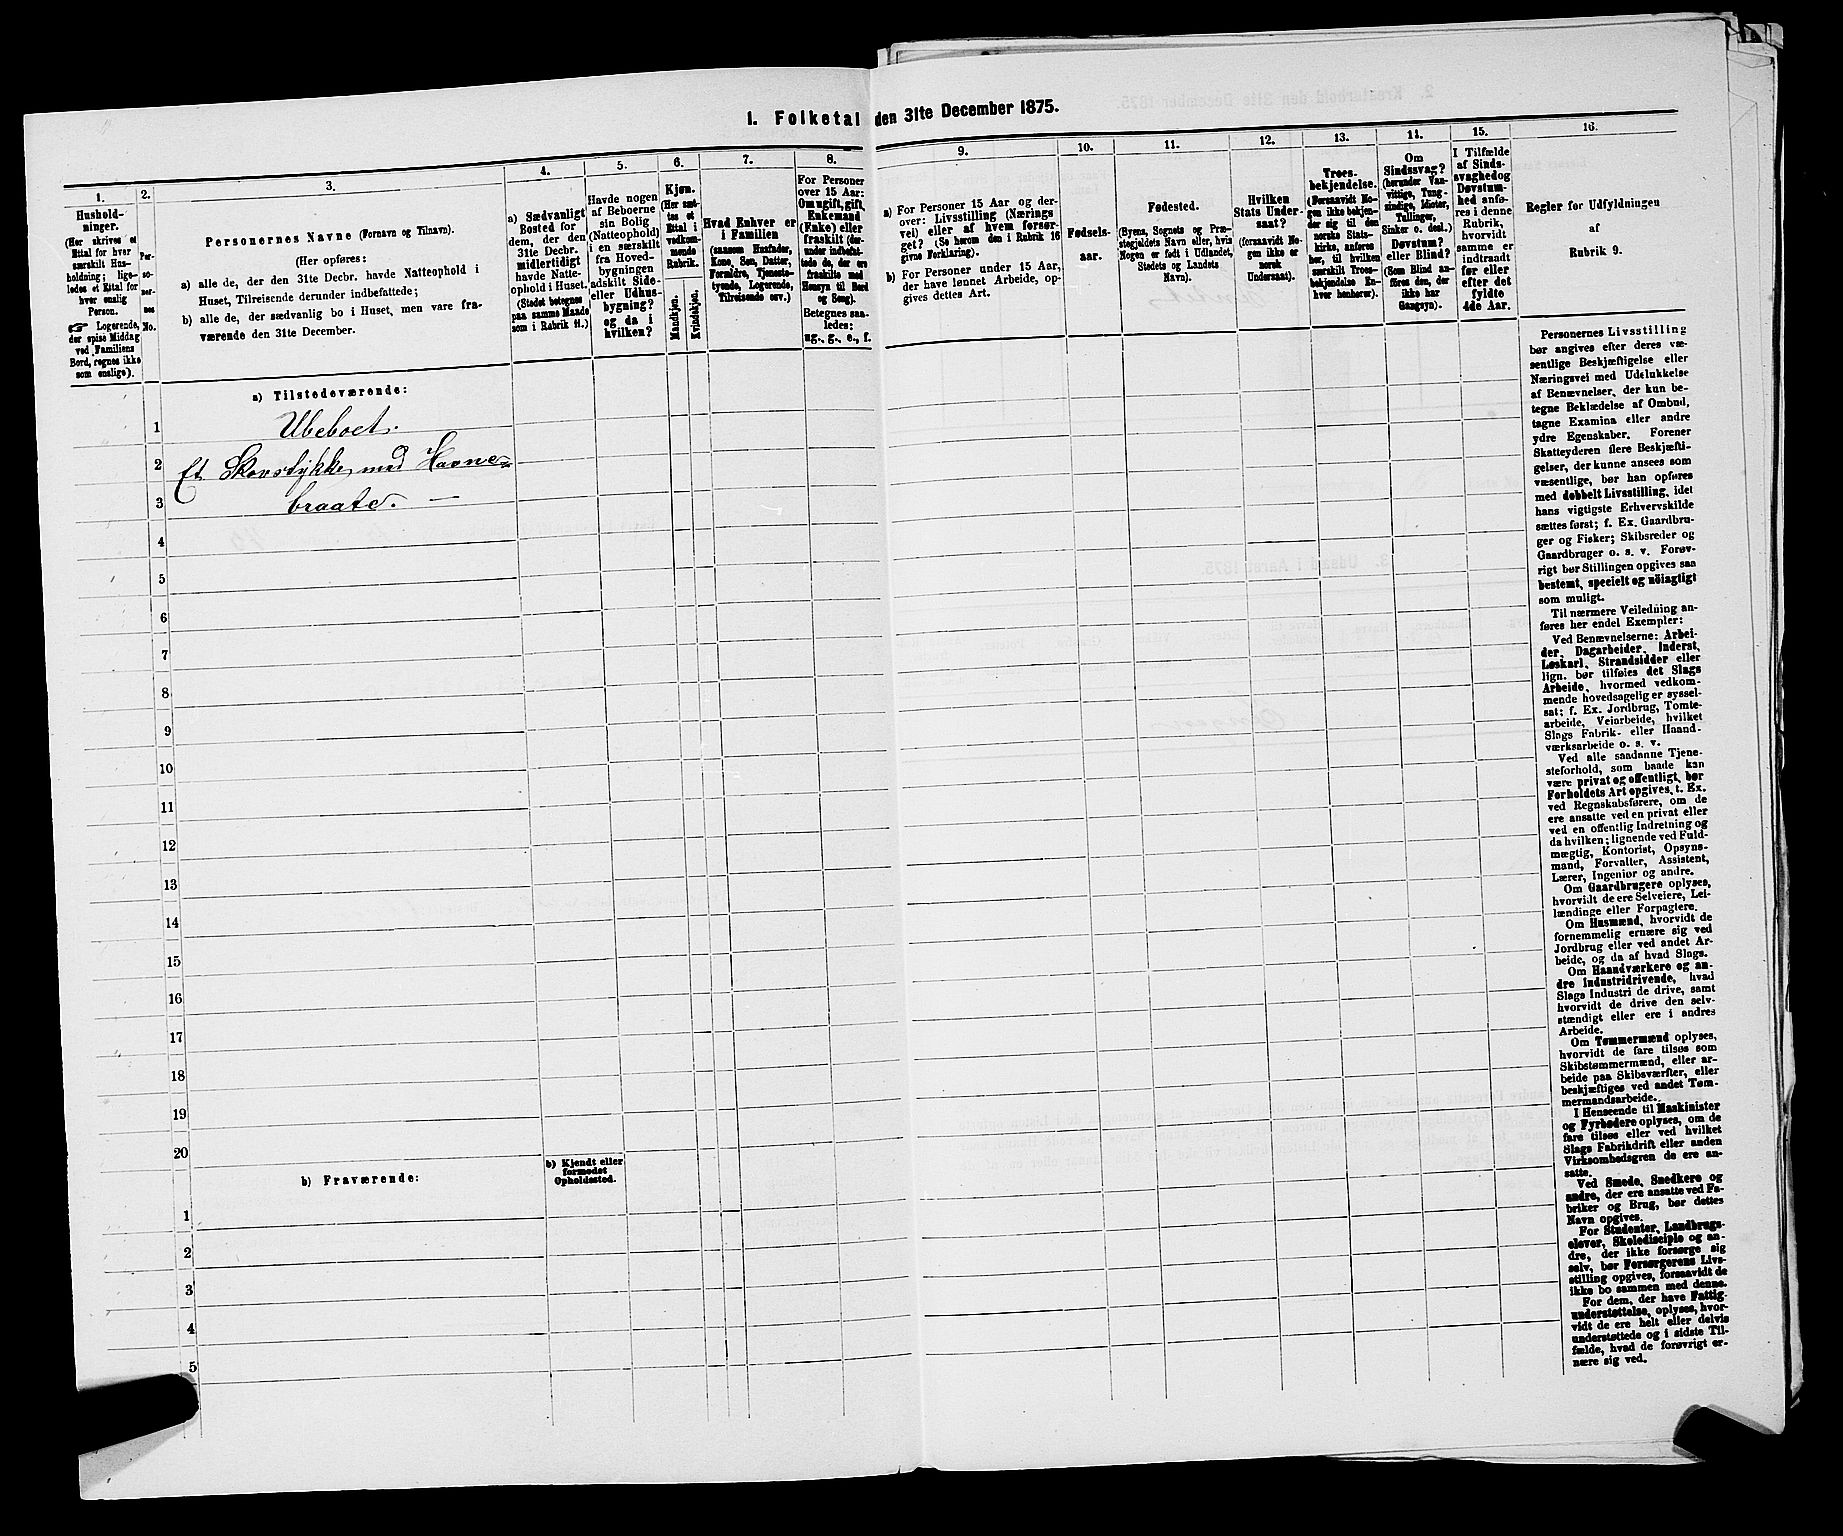 1. Folketal den 31te December 1875.
1.
Hushold-
ninger.
(Her skrives et
Ettal for hver
særskilt Hus-
holdning; lige-
ledes et Ettal for
hver enslig
Person.
☞ Logerende,
der spise Middag
ved Familiens
Bord, regnes ikke
som enslige).
2.
Per-
so-
ner-
nes
No.
3.
Personernes Navne (Fornavn og Tilnavn).
(Her opføres:
a) alle de, der den 31te Decbr. havde Natteophold i
Huset, Tilreisende derunder indbefattede;
b) alle de, der sædvanlig bo i Huset, men vare fra-
værende den 31te December.
4.
a) Sædvanligt
Bosted for
dem, der den
31te Decbr.
midlertidigt
havde Natte-
ophold i Huset.
(Stedet betegnes
paa samme Maade
som i Rubrik 11.)
5.
Havde nogen
af Beboerne
sin Bolig
(Natteophold)
i en særskilt
fra Hoved-
bygningen
adskilt Side-
eller Udhus-
bygning?
og da i
hvilken?
6.
Kjøn.
(Her sæt-
tes et
Ettal i
vedkom-
mende
Rubrik.
Mandkjøn.
Kvindekjøn.
7.
Hvad Enhver er
i Familien
(saasom Husfader,
Kone, Søn, Datter,
Forældre, Tjeneste-
tyende, Logerende,
Tilreisende osv.)
8.
For Personer
over 15 Aar:
Om ugift, gift,
Enkemand
(Enke) eller
fraskilt (der-
under indbefat-
tede de, der ere
fraskilte med
Hensyn til Bord
og Seng).
Betegnes saa-
ledes:
ug., g., e., f.
9.
a) For Personer 15 Aar og der-
over: Livsstilling (Nærings
vei) eller af hvem forsør-
get? (Se herom den i Rubrik 16
givne Forklaring).
b) For Personer under 15 Aar,
der have lønnet Arbeide, op-
gives dettes Art.
10.
Fødsels-
aar.
11.
Fødested.
(Byens, Sognets og Præ-
stegjeldets Navn eller, hvis
Nogen er født i Udlandet,
Stedets og Landets
Navn).
12.
Hvilken
Stats Under-
saat?
(forsaavidt No-
gen ikke er
norsk
Undersaat).
13.
Troes-
bekjendelse.
(Forsaavidt No-
gen ikke bekjen-
der sig til den
norske Stats-
kirke, anføres
her, til hvilken
særskilt Troes-
bekjendelse En-
hver henhører).
14.
Om
Sindssvag?
(herunder Van-
vittige, Tung-
sindige, Idioter,
Tullinger,
Sinker o. desl.)
Døvstum?
eller Blind?
(Som Blind an-
føres den, der
ikke har
Gangsyn).
15.
I Tilfælde
af Sinds-
svaghed og
Døvstum-
hed anfø-
res i denne
Rubrik,
hvorvidt
samme er
indtraadt
før eller
efter det
fyldte
4de Aar.
16.
Regler for Udfyldningen
af
Rubrik 9.
a) Tilstedeværende:
1 Ubeboet.
2 Et Skovstykke med Havne-
3 braate. —
4
5
6
7
8
9
10
11
12
13
14
15
16
17
18
19
20
b) Fraværende:
b) Kjendt eller
formodet
Opholdssted.
1
2
3
4
5
Personernes Livsstilling
bør angives efter deres væ-
sentlige Beskjæftigelse eller
Næringsvei med Udelukkelse
af Benævnelser, der kun be-
tegne Beklædelse af Ombud,
tagne Examina eller andre
ydre Egenskaber. Forener
Skatteyderen flere Beskjæfti-
gelser, der kunne ansees som
væsentlige, bør han opføres
med dobbelt Livsstilling, idet
hans vigtigste Erhvervskilde
sættes først; f. Ex. Gaardbru-
ger og Fisker; Skibsreder og
Gaardbruger o. s. v. Forøv-
rigt bør Stillingen opgives saa
bestemt, specielt og nöiagtigt
som muligt.
Til nærmere Veiledning an-
føres her endel Exempler:
Ved Benævnelserne: Arbei-
der, Dagarbeider, Inderst,
Løskarl, Strandsidder eller
lign. bør tilføies det Slags
Arbeide, hvormed vedkom-
mende hovedsagelig er syssel-
sat; f. Ex. Jordbrug, Tomte-
arbeide, Veiarbeide, hvilket
Slags Fabrik- eller Haand-
værksarbeide o. s. v.
Ved alle saadanne Tjene-
steforhold, som baade kan
være privat og offentligt, bør
Forholdets Art opgives, t. Ex.
ved Regnskabsførere, om de
ere ansatte ved en privat eller
ved en offentlig Indretning og
da hvilken; lignende ved Fuld-
mægtig, Kontorist, Opsyns-
mand, Forvalter, Assistent,
Lærer, Ingeniør og andre.
Om Gaardbrugere oplyses,
hvorvidt de ere Selveiere, Lei-
lændinge eller Forpagtere.
Om Husmænd, hvorvidt de
fornemmelig ernære sig ved
Jordbrug eller ved andet Ar-
beide, og da af hvad Slags.
Om Haandværkere og an-
dre Industridrivende, hvad
Slags Industri de drive, samt
hvorvidt de drive den selv-
stændigt eller ere i andres
Arbeide.
Om Tømmermænd oplyses,
hvorvidt de fare tilsøs som
Skibstømmermænd, eller ar-
beide paa Skibsværfter, eller
beskjæftiges ved andet Tøm-
mermandsarbeide.
I Henseende til Maskinister
og Fyrbødere oplyses, om de
fare tilsøs eller ved hvilket
Slags Fabrikdrift eller anden
Virksomhedsgren de ere an-
satte.
Ved Smede, Snedkere og
andre, der ere ansatte ved Fa-
briker og Brug, bør dettes
Navn opgives.
For Studenter, Landbrugs-
elever, Skoledisciple og an-
dre, der ikke forsørge sig
selv, bør Forsørgerens Livs-
stilling opgives, forsaavidt de
ikke bo sammen med denne.
For dem, der have Fattig-
understøttelse, oplyses, hvor-
vidt de ere helt eller delvis
understøttede og i sidste Til-
fælde, hvad de forøvrigt er-
nære sig ved.